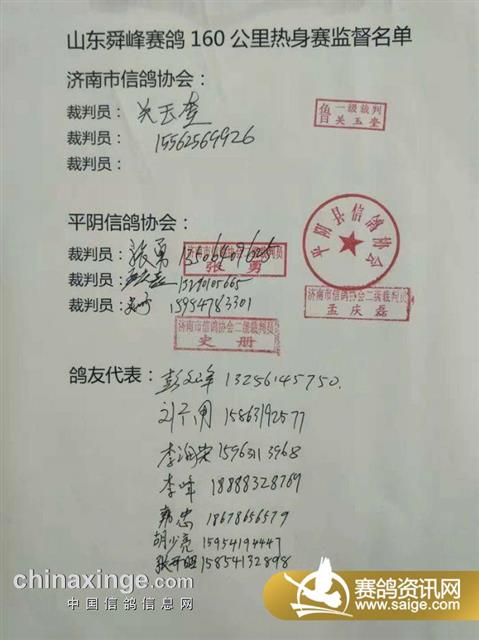 山东舜峰赛鸽160公里热身赛监督名单
济南市信鸽协会：
裁判员：关玉奎
一级裁判
关玉奎
裁判员：15562569926
裁判员：
平阴信鸽协会：
平阴县信鸽协会
裁判员：张勇 13506409625
济南市信鸽协会二级裁判员
张勇
裁判员：15210105665
济南市信鸽协会二级裁判员
孟庆磊
裁判员：史册 15954783301
济南市信鸽协会二级裁判员
史册
鸽友代表：13256145750
15863192577
李润荣 15963113968
李峰 18888328769
韩忠 18678656579
胡少亮 15954194447
张开明 15854132898
chinaxinge.com
中国信鸽信息网
赛鸽资讯网
www.saige.com